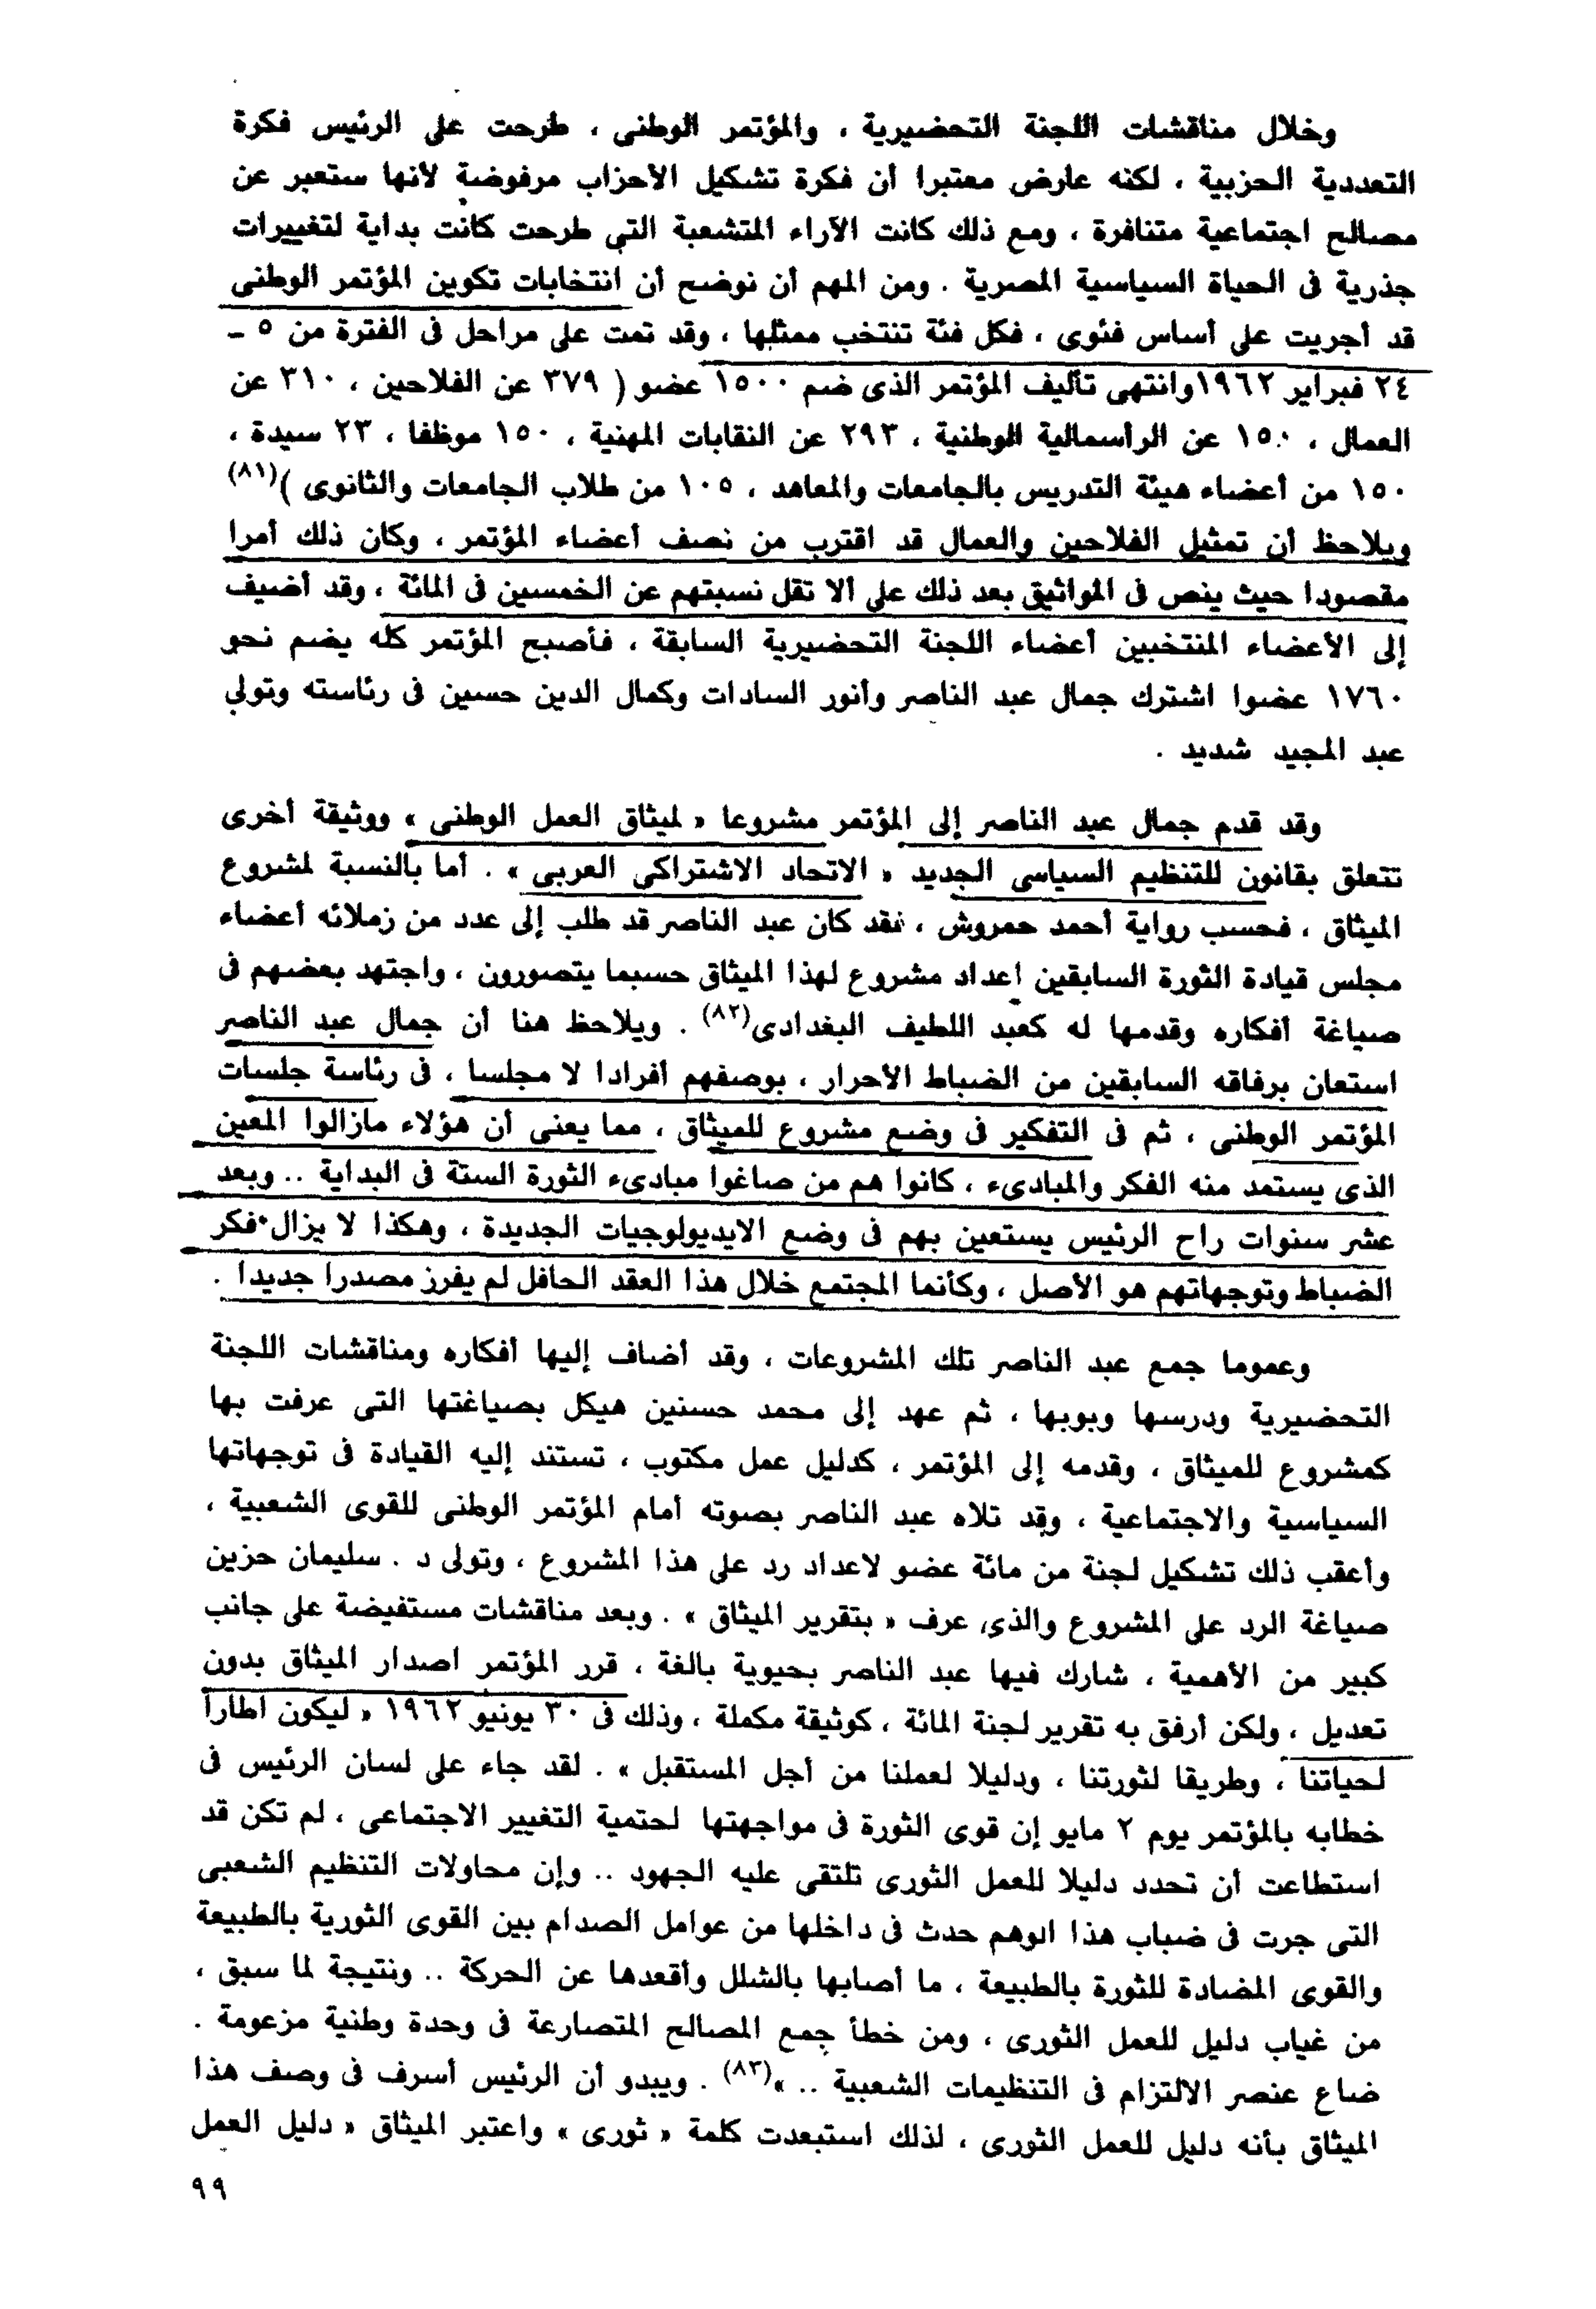 وخلال مناقشات اللجنة التحضيرية ، والمؤتمر الوطنى ، طرحت على الرئيس فكرة
التعددية الحزبية ، لكنه عارض معتبرا أن فكرة تشكيل الأحزاب مرفوضة لأنها ستعبر عن
مصالح اجتماعية متنافرة ، ومع ذلك كانت الآراء المتشعبة التى طرحت كانت بداية لتغييرات
جذرية فى الحياة السياسية المصرية . ومن المهم أن نوضح أن انتخابات تكوين المؤتمر الوطنى
قد أجريت على أساس فئوى ، فكل فئة تنتخب ممثلها ، وقد تمت على مراحل فى الفترة من ٥ ـ
٢٤ فبراير ١٩٦٢ وانتهى تأليف المؤتمر الذى ضم ١٥٠٠ عضو ( ٣٧٩ عن الفلاحين ، ٣١٠ عن
العمال ، ١٥٠ عن الرأسمالية الوطنية ، ٢٩٣ عن النقابات المهنية ، ١٥٠ موظفا ، ٢٣ سيدة ،
١٥٠ من أعضاء هيئة التدريس بالجامعات والمعاهد ، ١٠٥ من طلاب الجامعات والثانوى )(٨١)
ويلاحظ أن تمثيل الفلاحين والعمال قد اقترب من نصف أعضاء المؤتمر ، وكان ذلك أمرا
مقصودا حيث ينص فى المواثيق بعد ذلك على ألا تقل نسبتهم عن الخمسين فى المائة ، وقد أضيف
إلى الأعضاء المنتخبين أعضاء اللجنة التحضيرية السابقة ، فأصبح المؤتمر كله يضم نحو
١٧٦٠ عضوا اشترك جمال عبد الناصر وأنور السادات وكمال الدين حسين فى رئاسته وتولى
عبد المجيد شديد .
وقد قدم جمال عبد الناصر إلى المؤتمر مشروعا « لميثاق العمل الوطنى » ووثيقة أخرى
تتعلق بقانون للتنظيم السياسى الجديد « الاتحاد الاشتراكى العربى » . أما بالنسبة لمشروع
الميثاق ، فحسب رواية أحمد حمروش ، فقد كان عبد الناصر قد طلب إلى عدد من زملائه أعضاء
مجلس قيادة الثورة السابقين إعداد مشروع لهذا الميثاق حسبما يتصورون ، واجتهد بعضهم فى
صياغة أفكاره وقدمها له كعبد اللطيف البغدادى(٨٢) . ويلاحظ هنا أن جمال عبد الناصر
استعان برفاقه السابقين من الضباط الأحرار ، بوصفهم أفرادا لا مجلسا ، فى رئاسة جلسات
المؤتمر الوطنى ، ثم فى التفكير فى وضع مشروع للميثاق ، مما يعنى أن هؤلاء مازالوا المعين
الذى يستمد منه الفكر والمبادىء ، كانوا هم من صاغوا مبادىء الثورة الستة فى البداية .. وبعد
عشر سنوات راح الرئيس يستعين بهم فى وضع الايديولوجيات الجديدة ، وهكذا لا يزال فكر
الضباط وتوجهاتهم هو الأصل ، وكأنما المجتمع خلال هذا العقد الحافل لم يفرز مصدرا جديدا .
وعموما جمع عبد الناصر تلك المشروعات ، وقد أضاف إليها أفكاره ومناقشات اللجنة
التحضيرية ودرسها وبوبها ، ثم عهد إلى محمد حسنين هيكل بصياغتها التى عرفت بها
كمشروع للميثاق ، وقدمه إلى المؤتمر ، كدليل عمل مكتوب ، تستند إليه القيادة فى توجهاتها
السياسية والاجتماعية ، وقد تلاه عبد الناصر بصوته أمام المؤتمر الوطنى للقوى الشعبية ،
وأعقب ذلك تشكيل لجنة من مائة عضو لاعداد رد على هذا المشروع ، وتولى د . سليمان حزين
صياغة الرد على المشروع والذى عرف « بتقرير الميثاق » . وبعد مناقشات مستفيضة على جانب
كبير من الأهمية ، شارك فيها عبد الناصر بحيوية بالغة ، قرر المؤتمر اصدار الميثاق بدون
تعديل ، ولكن أرفق به تقرير لجنة المائة ، كوثيقة مكملة ، وذلك فى ٣٠ يونيو ١٩٦٢ « ليكون اطارا
لحياتنا ، وطريقا لثورتنا ، ودليلا لعملنا من أجل المستقبل » . لقد جاء على لسان الرئيس فى
خطابه بالمؤتمر يوم ٢ مايو إن قوى الثورة فى مواجهتها لحتمية التغيير الاجتماعى ، لم تكن قد
استطاعت أن تحدد دليلا للعمل الثورى تلتقى عليه الجهود .. وإن محاولات التنظيم الشعبى
التى جرت فى ضباب هذا الوهم حدث فى داخلها من عوامل الصدام بين القوى الثورية بالطبيعة
والقوى المضادة للثورة بالطبيعة ، ما أصابها بالشلل وأقعدها عن الحركة .. ونتيجة لما سبق ،
من غياب دليل للعمل الثورى ، ومن خطأ جمع المصالح المتصارعة فى وحدة وطنية مزعومة .
ضاع عنصر الالتزام فى التنظيمات الشعبية .. »(٨٣) . ويبدو أن الرئيس أسرف فى وصف هذا
الميثاق بأنه دليل للعمل الثورى ، لذلك استبعدت كلمة « ثورى » واعتبر الميثاق « دليل العمل
٩٩